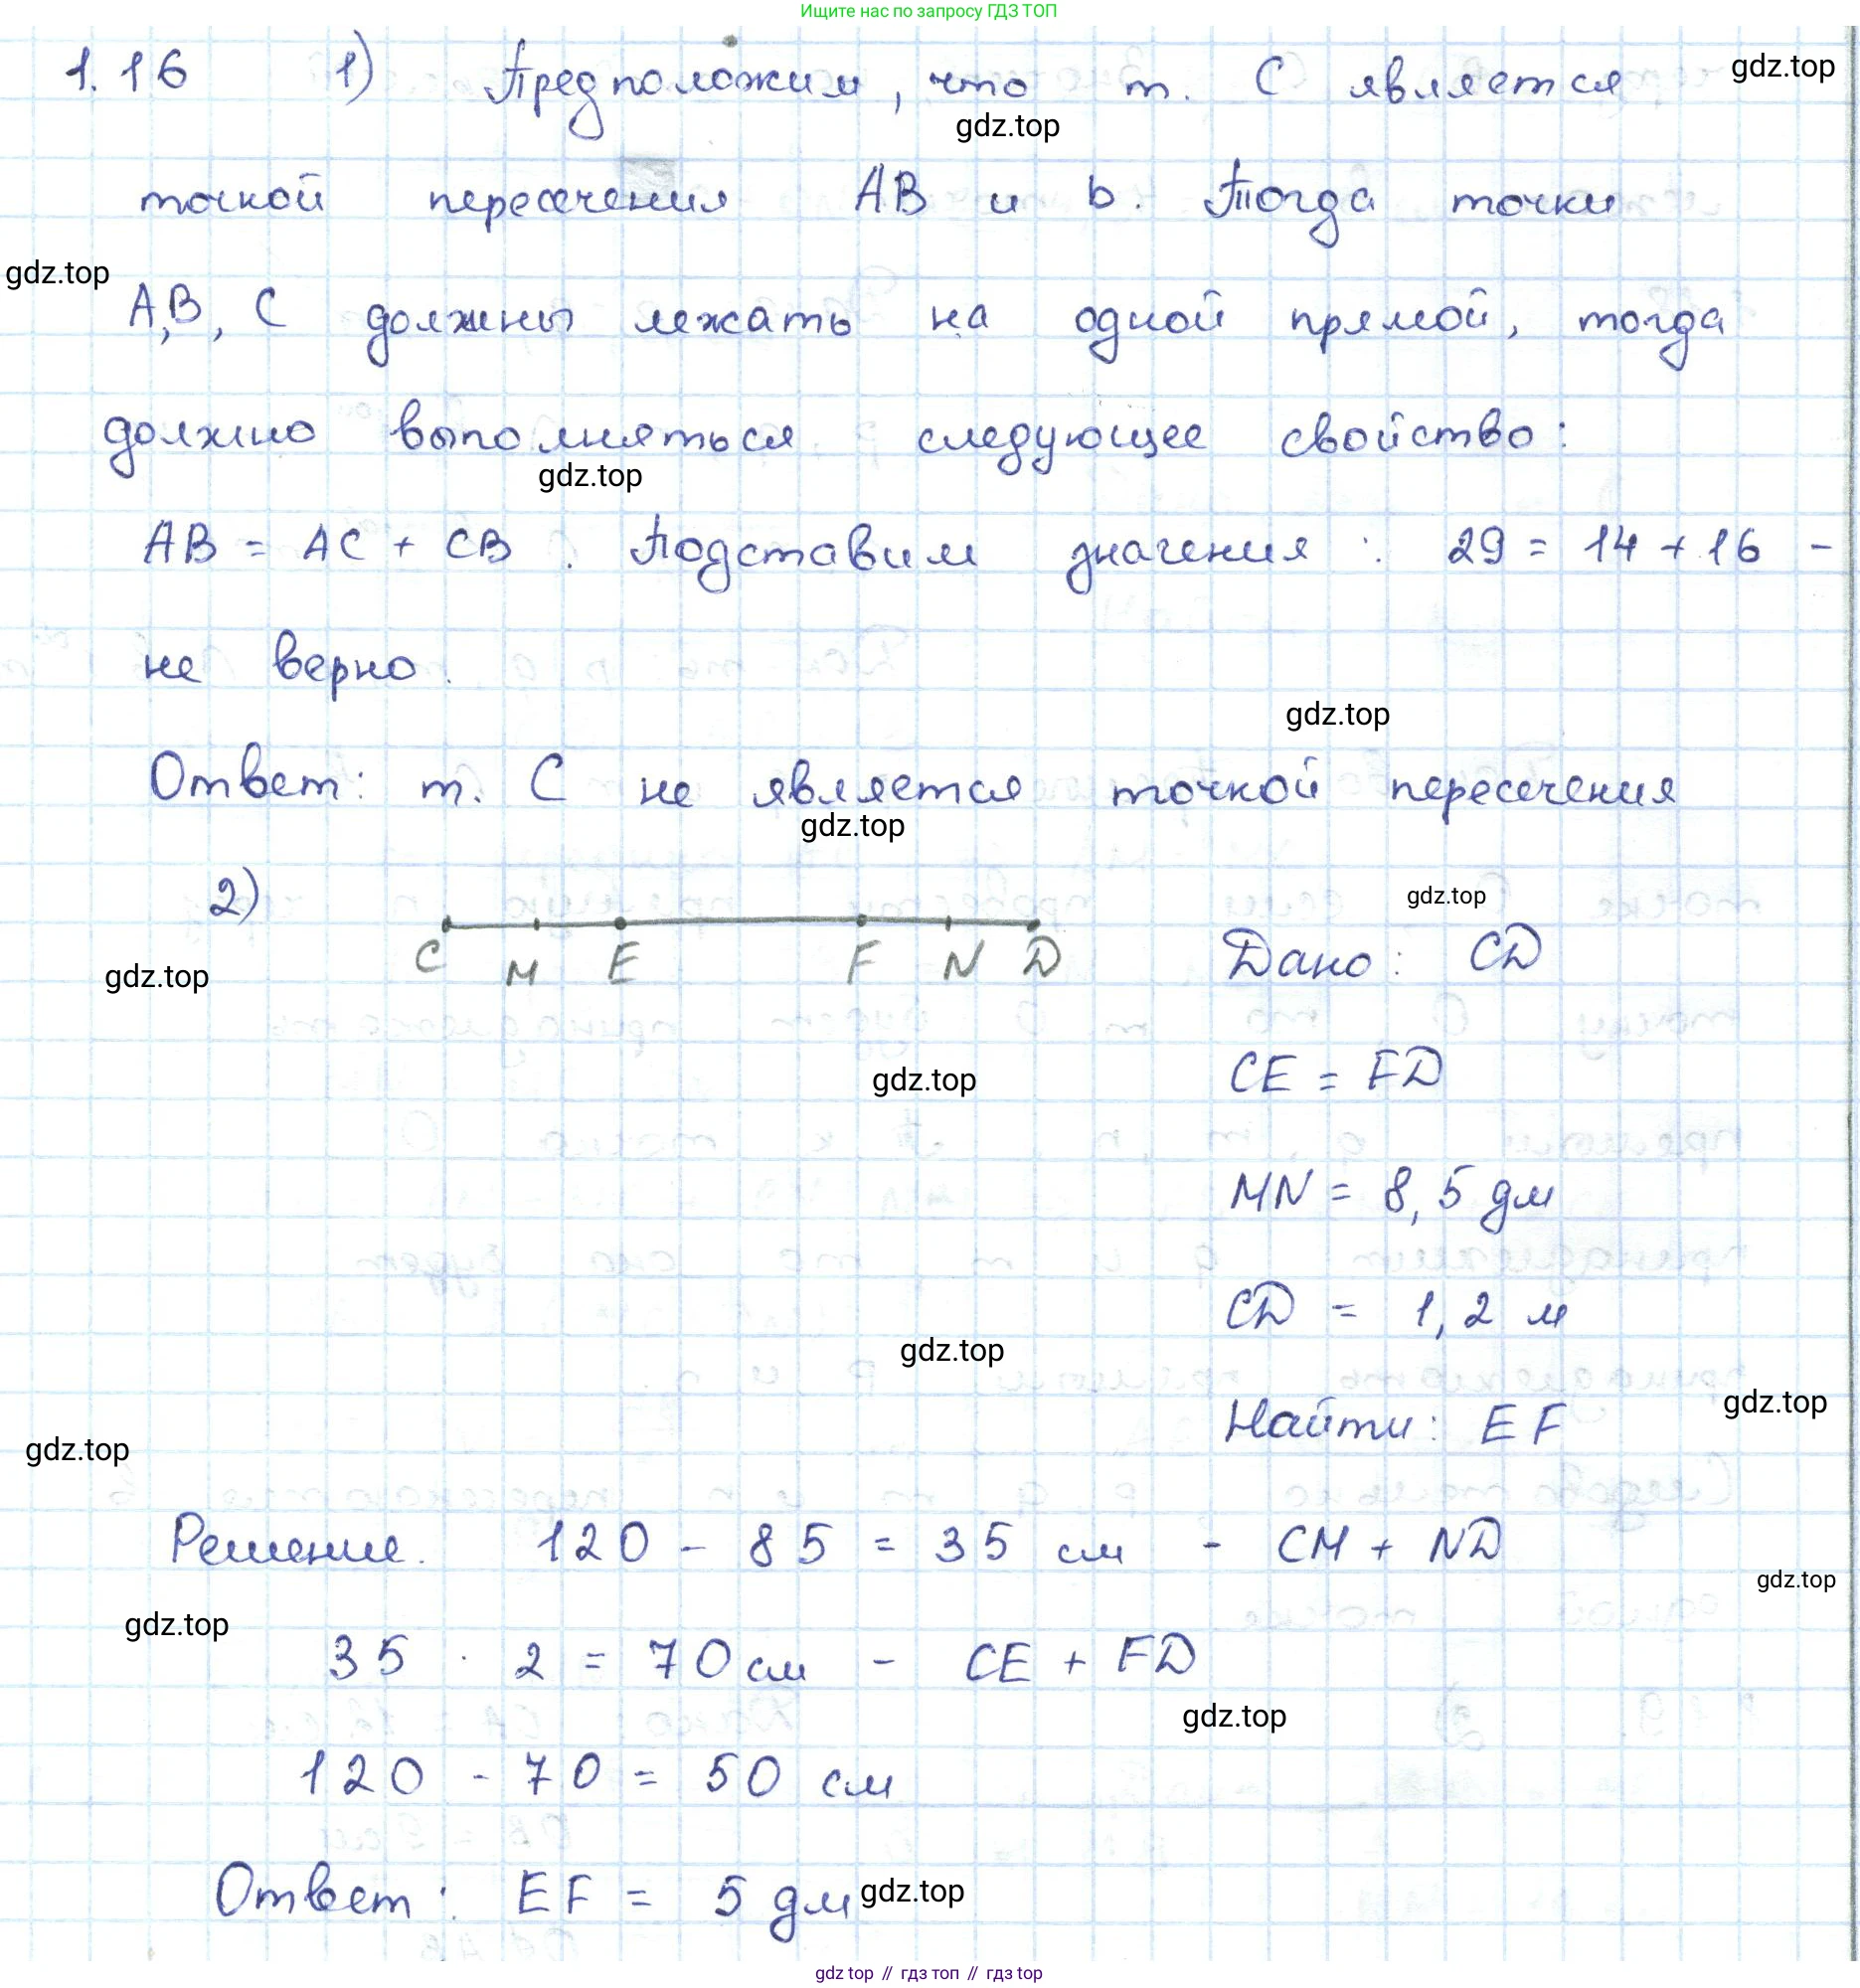 Ищите нас по запросу ГДЗ ТОП
1.16 1) Предположим, что т. С является
gdz.top
gdz.top
точкой пересечения АВ и b. Тогда точки
gdz.top
А, В, С должны лежать на одной прямой, тогда
должно выполняться следующее свойство:
gdz.top
АВ = АС + СВ. Подставим значения: 29 = 14 + 16 -
не верно.
gdz.top
Ответ: т. С не является точкой пересечения
gdz.top
2)
C M E F N D
gdz.top
gdz.top
Дано: CD
CE = FD
gdz.top
MN = 8,5 дм
CD = 1,2 м
gdz.top
Найти: EF
gdz.top
gdz.top
Решение. 120 - 85 = 35 см - CM + ND
gdz.top
gdz.top
35 · 2 = 70 см - CE + FD
gdz.top
120 - 70 = 50 см
Ответ: EF = 5 дм
gdz.top
gdz top // гдз топ // гдз top